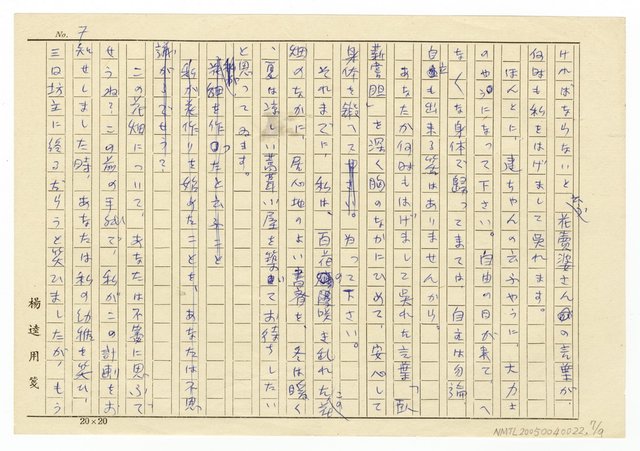 No. 7
ければならないと云ふ 花賣婆さんの言葉が、
何時も私をはげまして呉れます。
ほんとに、建ちゃんの云ふやうに、大力士
のやうになって下さい。自由の日が來て、へ
なくな身体で歸ってまては、自立は勿論
自立も出來る筈はありませんから。
あなたが何時もはげまして呉れた言葉「臥
薪嘗胆」を深く胸のなかにひめて、安心して
身体を鍛へて 下さい。
それまでに、私は、百花の咲き乱れたこの花
畑のなかに、居心地のよい書齋を、冬は暖く
、夏は涼しい葺小屋を築いてお待ちしたい
と思ってゐます。
花畑を作ったと云ふこと
私が花作りを始めたことを、あなたは不思
議がるでせう。
この花畑について、あなたは不審に思ふで
せうね？この前の手紙で、私がこの計劃をお
知せしました時、あなたは私の幼稚を笑ひ、
三日坊主に終るだらうと笑ひましたが、もう
楊逵用箋
20×20
NMTL20050040022 7/9